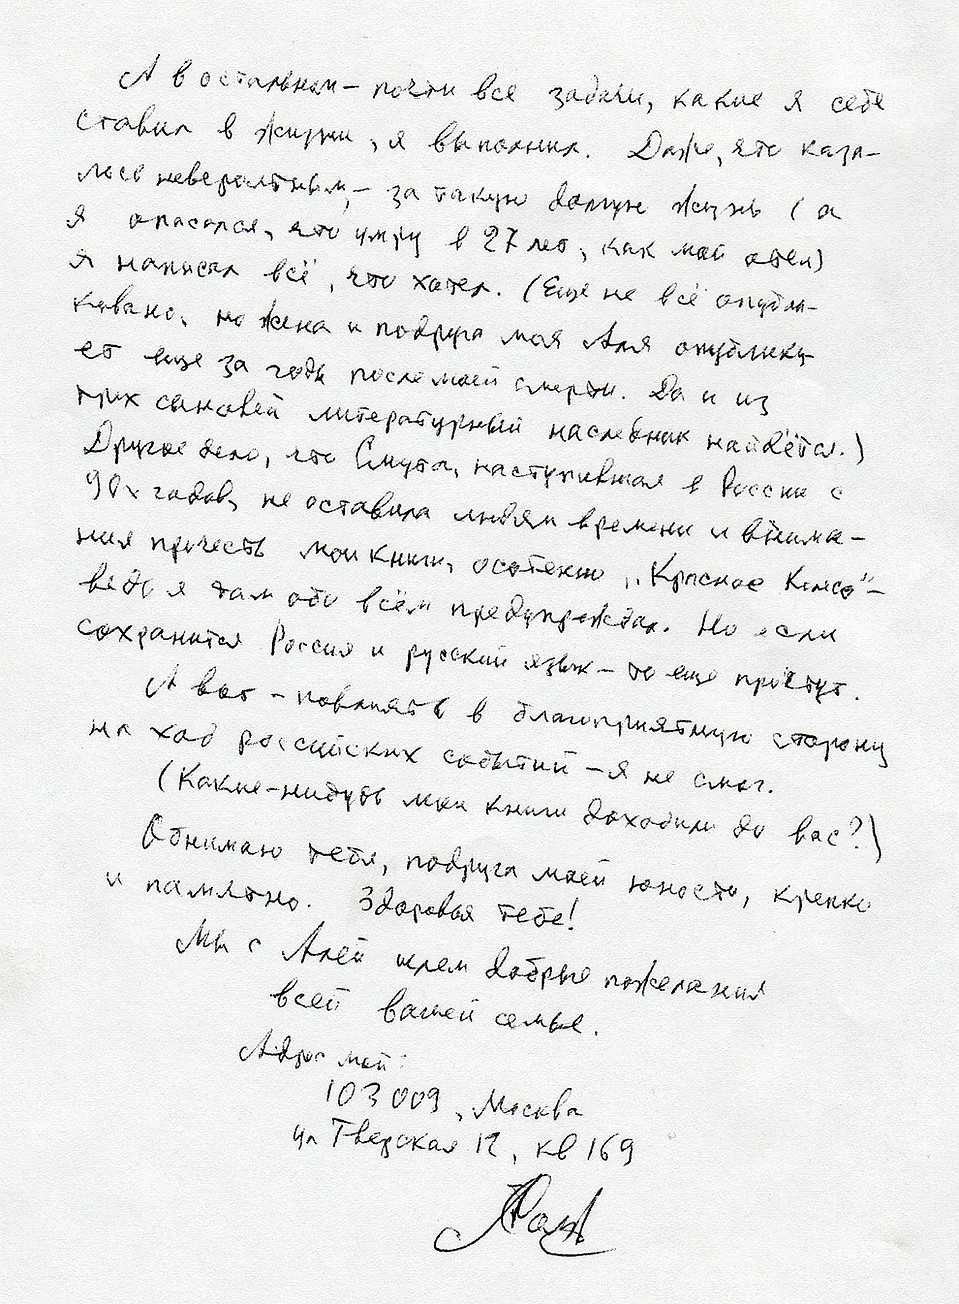 А в остальном – почти все задачи, какие я себе
ставил в жизни, я выполнил. Даже, что каза-
лось невероятным, – за такую долгую жизнь (а
я опасался, что умру в 27 лет, как мой отец)
я написал всё, что хотел. (Еще не всё опубли-
ковано, но жена и подруга моя Аля опублику-
ет еще за годы после моей смерти. Да и из
трих сыновей литературный наследник найдётся.)
Другое дело, что Смута, наступившая в России с
90х годов, не оставила людям времени и внима-
ния прочесть мои книги, особенно „Красное Колесо“ –
ведь я там обо всём предупреждал. Но если
сохранится Россия и русский язык – то еще прочтут.
А вот – повлиять в благоприятную сторону
на ход российских событий – я не смог.
(Какие-нибудь мои книги доходили до вас?)
Обнимаю тебя, подруга моей юности, крепко
и памятно. Здоровья тебе!
Мы с Алей шлем добрые пожелания
всей вашей семье.
Адрес мой:
103009, Москва
ул Тверская 12, кв 169